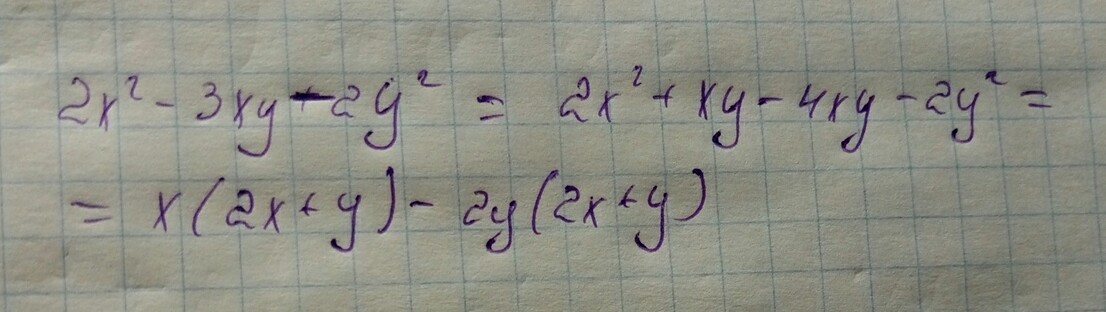 2x² - 3xy - 2y² = 2x² + xy - 4xy - 2y² =
= x(2x + y) - 2y(2x + y)